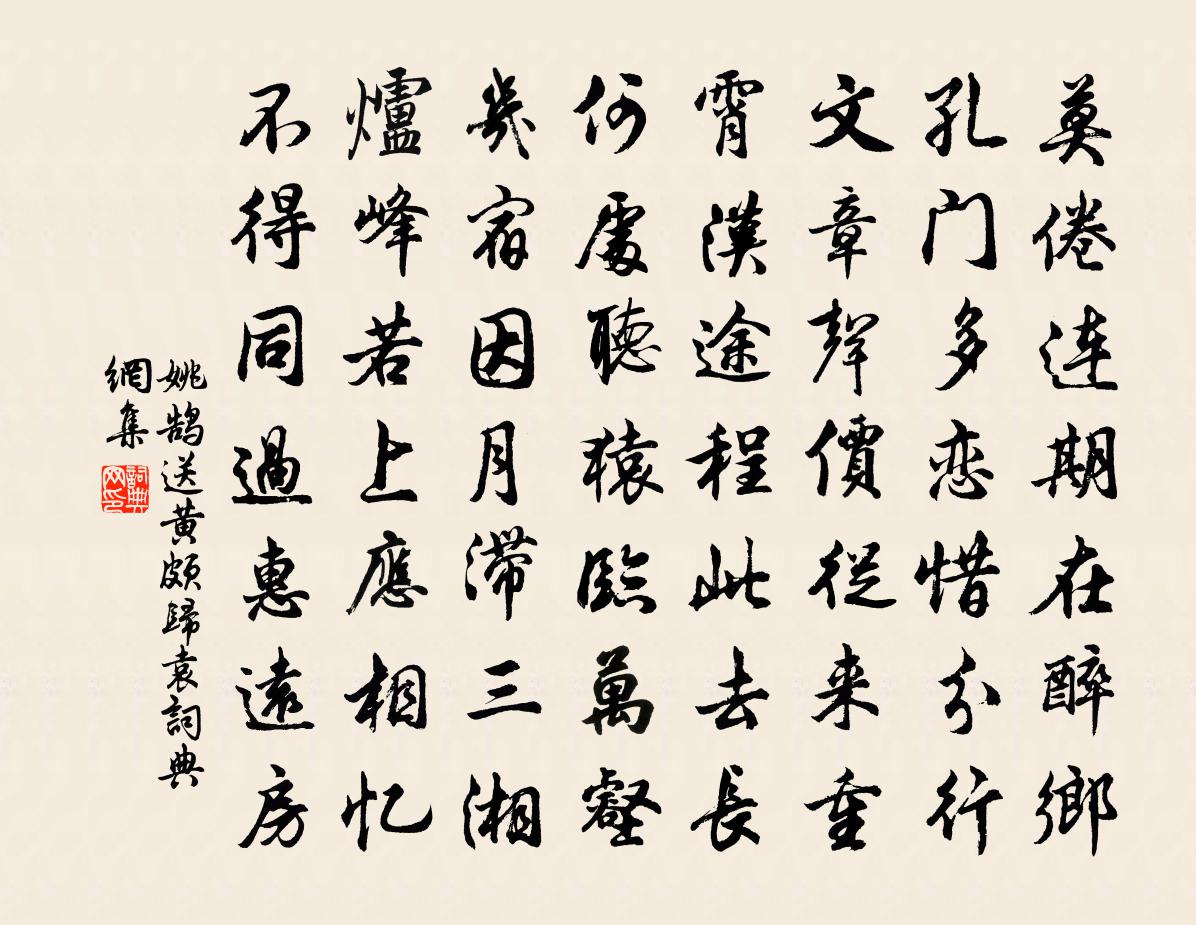 莫倦连期在醉鄉
孔门多恋惜分行
文章聲價從来重
霄漢途程此去長
何處聽猿臨萬壑
幾宿因月滞三湘
爐峰若上應相忆
不得同過惠遠房
姚鵠送黄颇歸袁詞典
網集
詞典网印